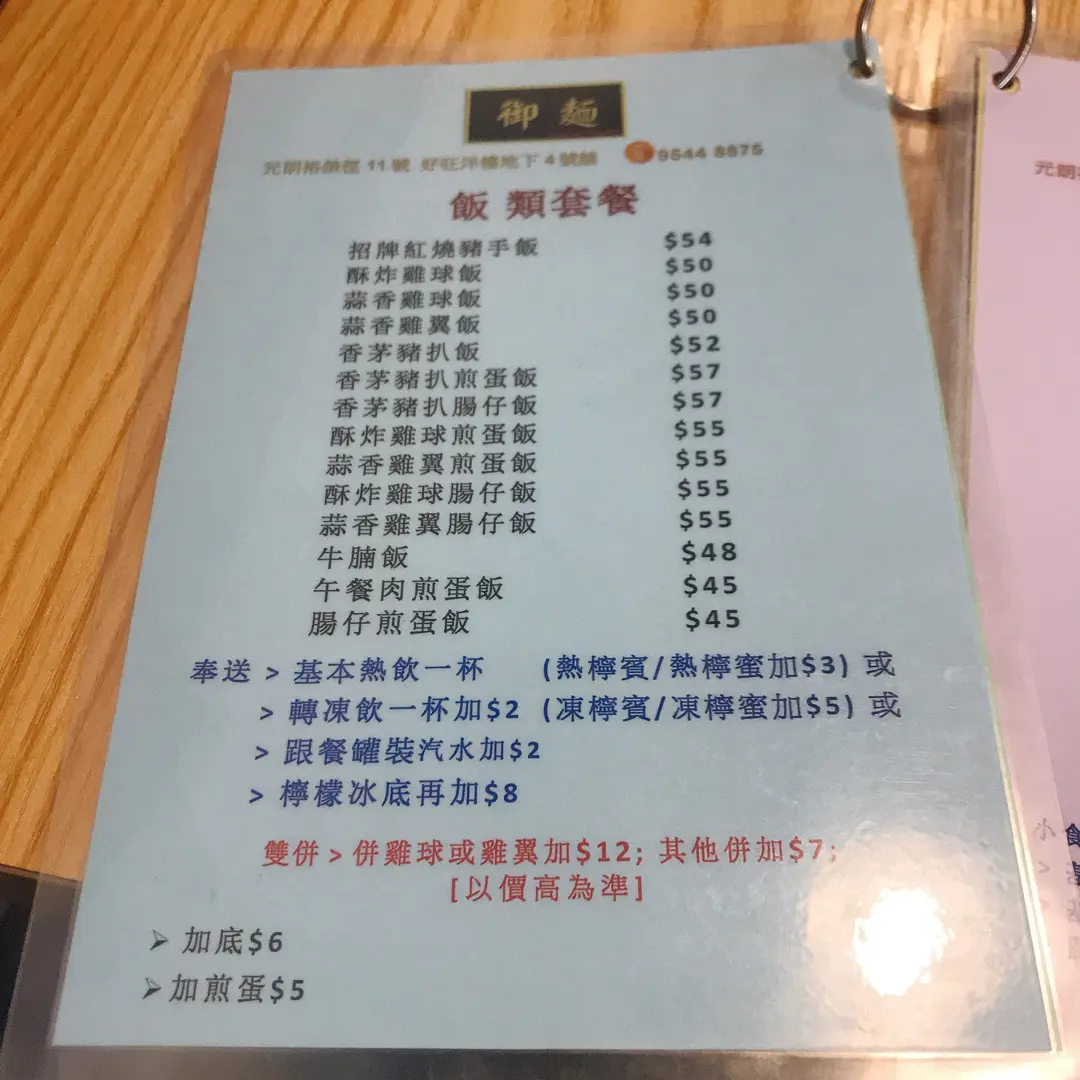 御麵
元朗裕榮徑 11 號 好旺洋樓地下 4 號舖 9544 8875
飯類套餐
招牌紅燒豬手飯 $54
酥炸雞球飯 $50
蒜香雞球飯 $50
蒜香雞翼飯 $50
香茅豬扒飯 $52
香茅豬扒煎蛋飯 $57
香茅豬扒腸仔飯 $57
酥炸雞球煎蛋飯 $55
蒜香雞翼煎蛋飯 $55
酥炸雞球腸仔飯 $55
蒜香雞翼腸仔飯 $55
牛腩飯 $48
午餐肉煎蛋飯 $45
腸仔煎蛋飯 $45
奉送 > 基本熱飲一杯 (熱檸賓/熱檸蜜加$3) 或
> 轉凍飲一杯加$2 (凍檸賓/凍檸蜜加$5) 或
> 跟餐罐裝汽水加$2
> 檸檬冰底再加$8
雙併 > 併雞球或雞翼加$12; 其他併加$7;
[以價高為準]
➢ 加底$6
➢ 加煎蛋$5
元朗
小食